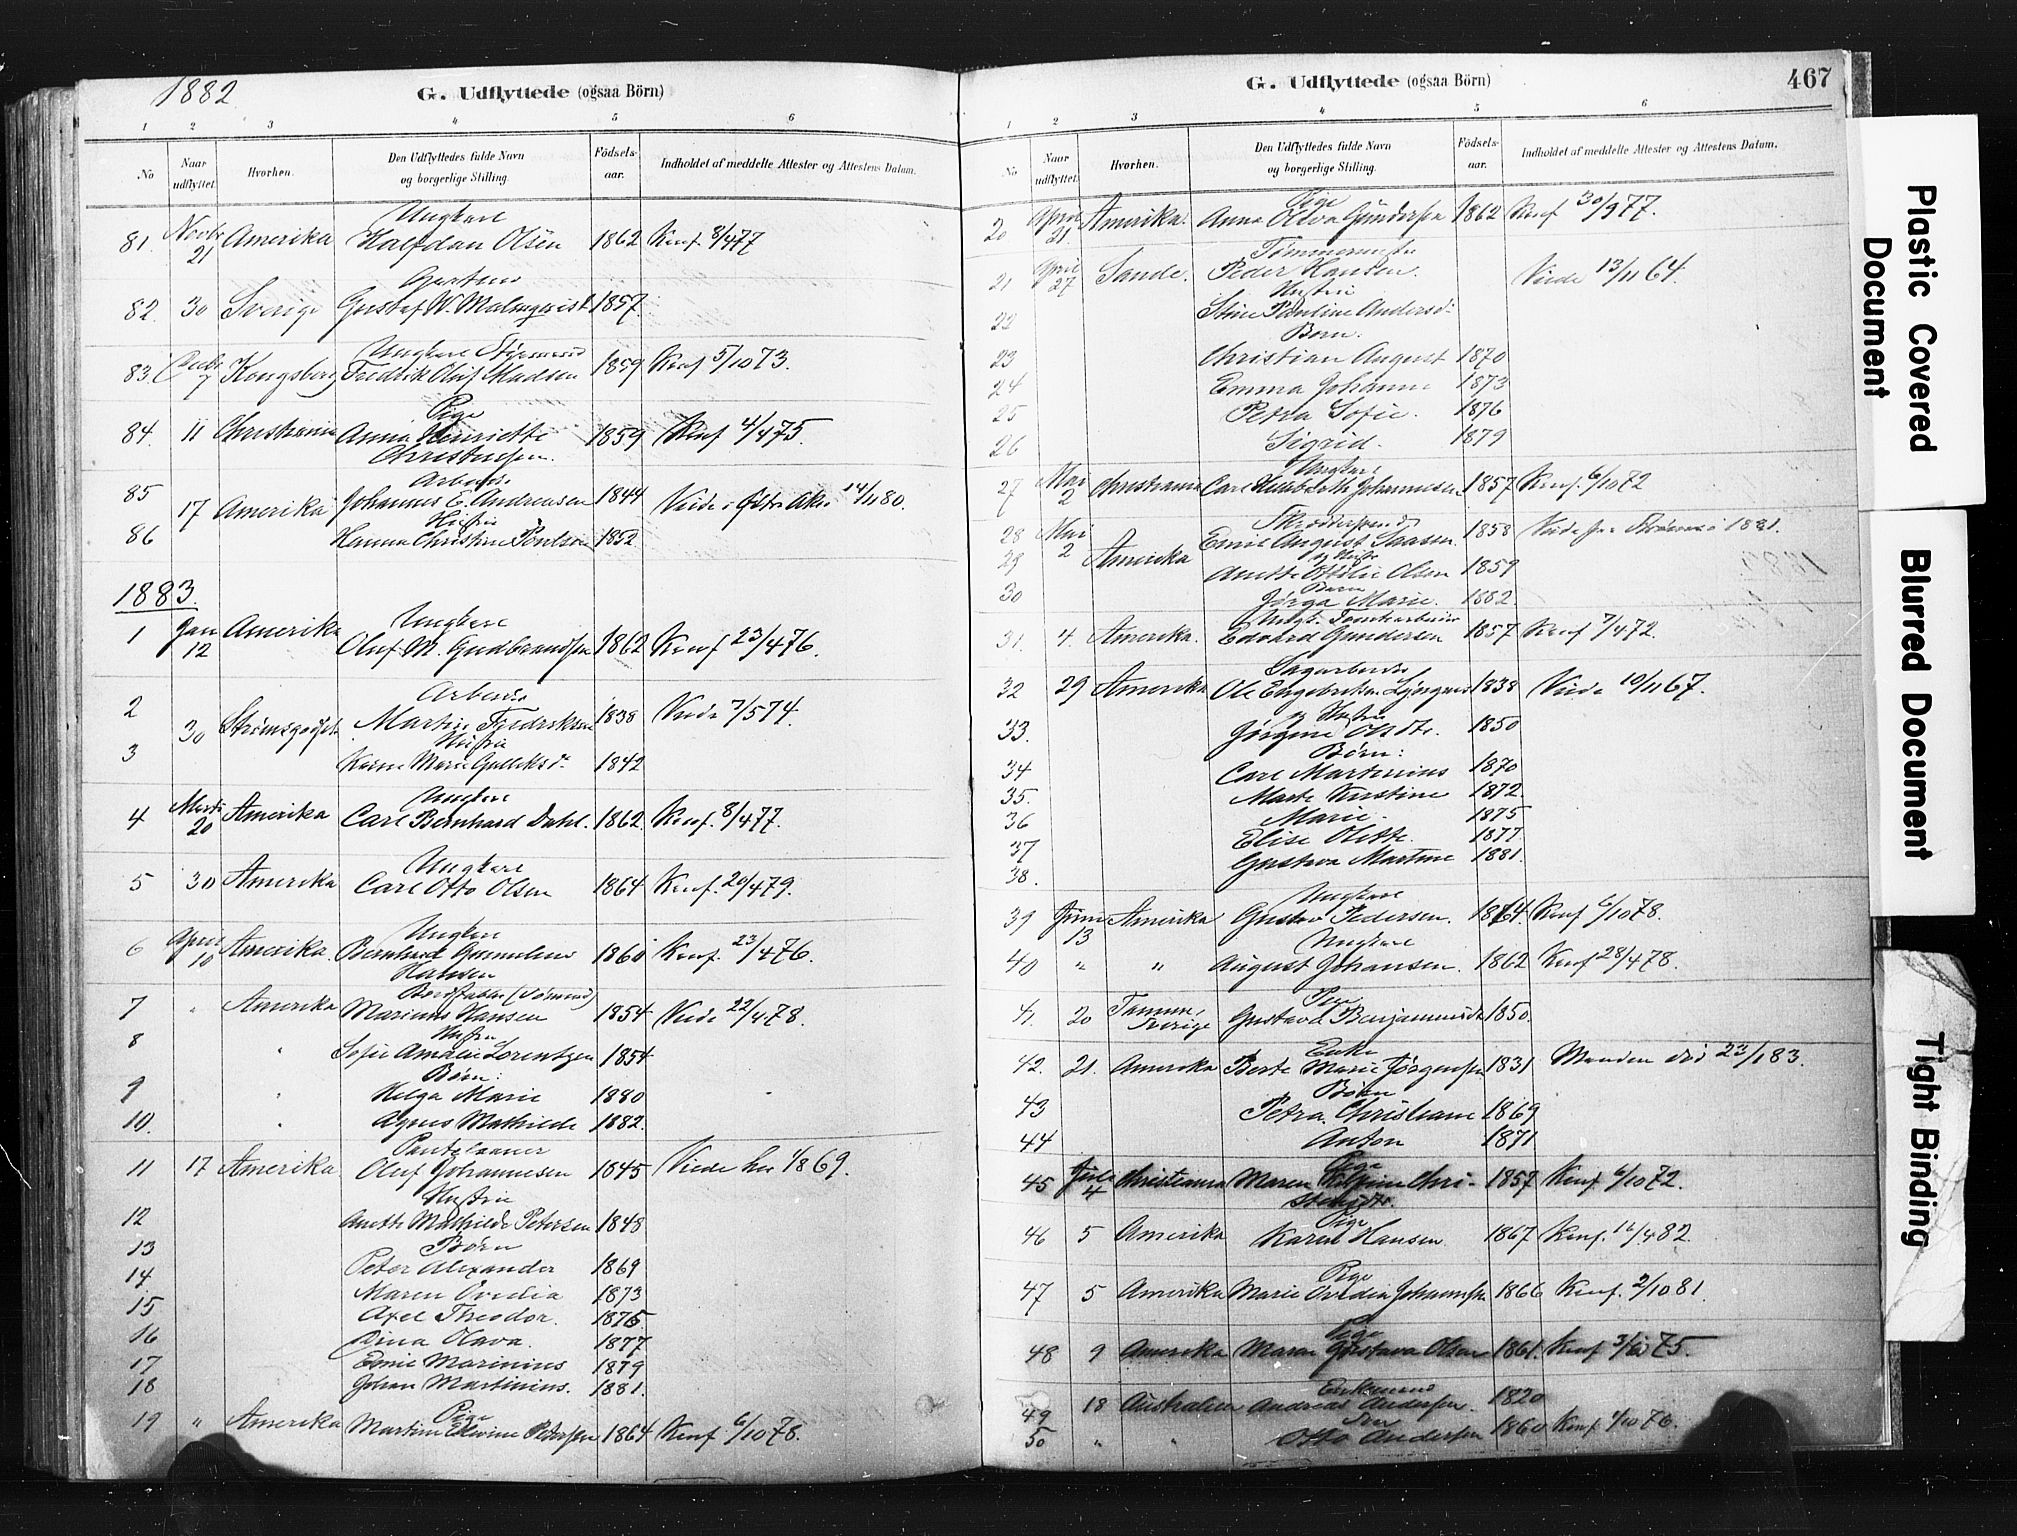 1882
G. Udflyttede (ogsaa Börn)
1 2 3 4 5 6
No
Naar udflyttet.
Hvorhen.
Den Udflyttedes fulde Navn og borgerlige Stilling.
Födsels-aar.
Indholdet af meddelte Attester og Attestens Datum.
Ungkarl
81. Novbr 21 Amerika Halfdan Olsen 1862 Konf. 8/4 77
82. 30 Sverige Gustaf W. Malmqvist 1857.
Ungkarl
83. Decbr 7 Kongsberg Fredrik Oluf Madsen 1859 Konf 5/10 73.
Pige
84. 11 Christiania Anna Henriette 1859 Konf 4/4 75.
Arbeider
85 17 Amerika Johannes E. Andreasen 1844 Viede i Østre Aker 14/11 80.
Hustru
86 Hanna Christine 1852.
1883.
Ungkarl
1 Jan 12 Amerika Oluf M. Gudbrandsen 1862 Konf 23/4 76.
Arbeider
2 30 Strømsgodset Martin Fredriksen 1838 Viede 7/5 74.
Hustru
3 Karen Marie Gulliksdr 1842
Ungkarl
4 Marts 20 Amerika Carl Bernhard Dahl. 1862 Konf. 8/4 77.
Ungkarl
5 30 Amerika Carl Otto Olsen 1864 Konf. 20/4 79.
Ungkarl
6 April 10 Amerika. Bernhard 1860 Konf. 23/4 76.
7 " Amerika Marius Hansen 1854 Viede 22/4 78.
Hustru
8 " Sofie Amalie Lorentzen 1854
Børn:
9 " Helga Marie 1880
10. Agnes Mathilde 1882.
11 17 Amerika. Oluf Johannesen 1845 Viede her 1/8 69.
Hustru
12 Anette Mathilde Petersen 1848
Børn
13
Peter Alexander 1869
14
Maren Ovidia 1873
15
Axel Theodor. 1875
16
Dina Olava. 1877
17 Emil Marinius 1879
18 Johan Martinius. 1881.
Pige
19 " Amerika Martine Edvine Pedersen 1864 Konf 6/10 78.
G. Udflyttede (ogsaa Börn)
467
1 2 3 4 5 6
No
Naar udflyttet.
Hvorhen.
Den Udflyttedes fulde Navn og borgerlige Stilling.
Födsels-aar.
Indholdet af meddelte Attester og Attestens Datum.
Pige
20 April 21 Amerika. Anna Olava Gundersen 1862 Konf 30/9 77.
Tømmermand
21 April 27 Sande. Peder Hansen. Viede 13/11 64.
Hustru
22 Stine Pauline Andersdr
Børn.
23 Christian August 1870
24 Emma Johanne 1873
25 Petra Sofie. 1876
26 Sigrid. 1879
Ungkarl
27 Mai 2 Christiania Carl Johannesen 1857 Konf. 6/10 72
28 Mai 2 Emil August Saasen. 1858 Viede 1881.
og Hustru
29 Amerika Anette Ottilie Olsen 1859
Barn
30 Jørga Marie. 1882.
31. 4. Amerika. Edvard Gundersen 1857 Konf 7/4 72.
Sagarbeider
32 29 Amerika Ole Engebretsen 1838 Viede 10/11 67.
og Hustru
33. Jørgine Olsdtr. 1850
Børn:
34 Carl Martinius 1870
35. Marte Kirstine 1872.
36 Marie. 1875
37 Elise Olette. 1877
38. Gustava Martine 1881.
Ungkarl
39 Juni 13 Amerika Gustav Pedersen. 1864. Konf 6/10 78.
Ungkarl
40 " " August Johansen. 1862 Konf 28/4 78.
Pige
41 20 Tanum, Sverige Gustava Benjaminsdr 1850.
Enke
42. 21. Amerika Berte Marie Jørgensen 1831 Manden død 23/1 83.
Børn
43 Petra Christiane 1869
44 Anton 1871
Pige
45 Juli 4 Christiania Maren 1857 Konf. 6/10 72.
Pige
46 5 Amerika Karen Hansen 1867 Konf. 16/4 82.
Pige
47 5 Amerika Marie Ovidia Johannesen 1866 Konf. 2/10 81.
Pige
48 9 Amerika Maren Gustava Olsen 1861. Konf 3/10 75.
Enkemand
49 18 Australien Andreas Andersen. 1820
Søn
50 " " Otto Andersen 1860 Konf 1/10 76.
Plastic Covered Document
Blurred Document
Tight Binding